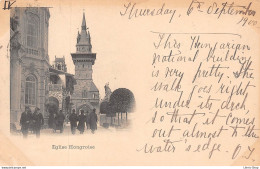 IV
Thursday, 6th September
1900
This Hungarian
national building
is very pretty. The
walk goes right
under its arch,
so that it comes
out almost to the
water's edge.
Eglise Hongroise